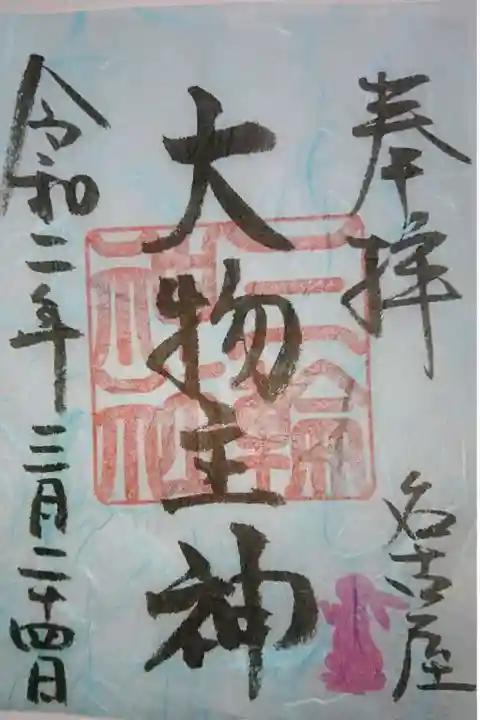 奉拝
名古屋
大物主神
三輪
神社
令和二年三月二十四日